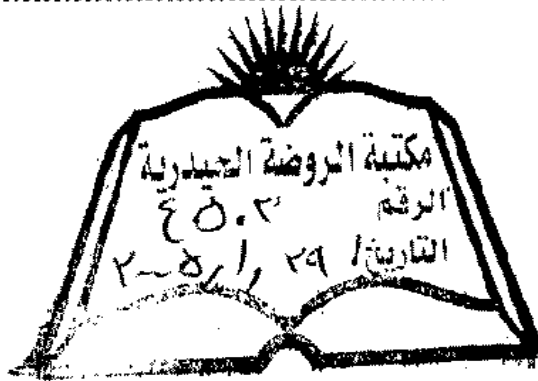 مكتبة الروضة الحيدرية
الرقم ٤٥٠٣
التاريخ/ ٢٩ / ١ / ٢٠٠٥